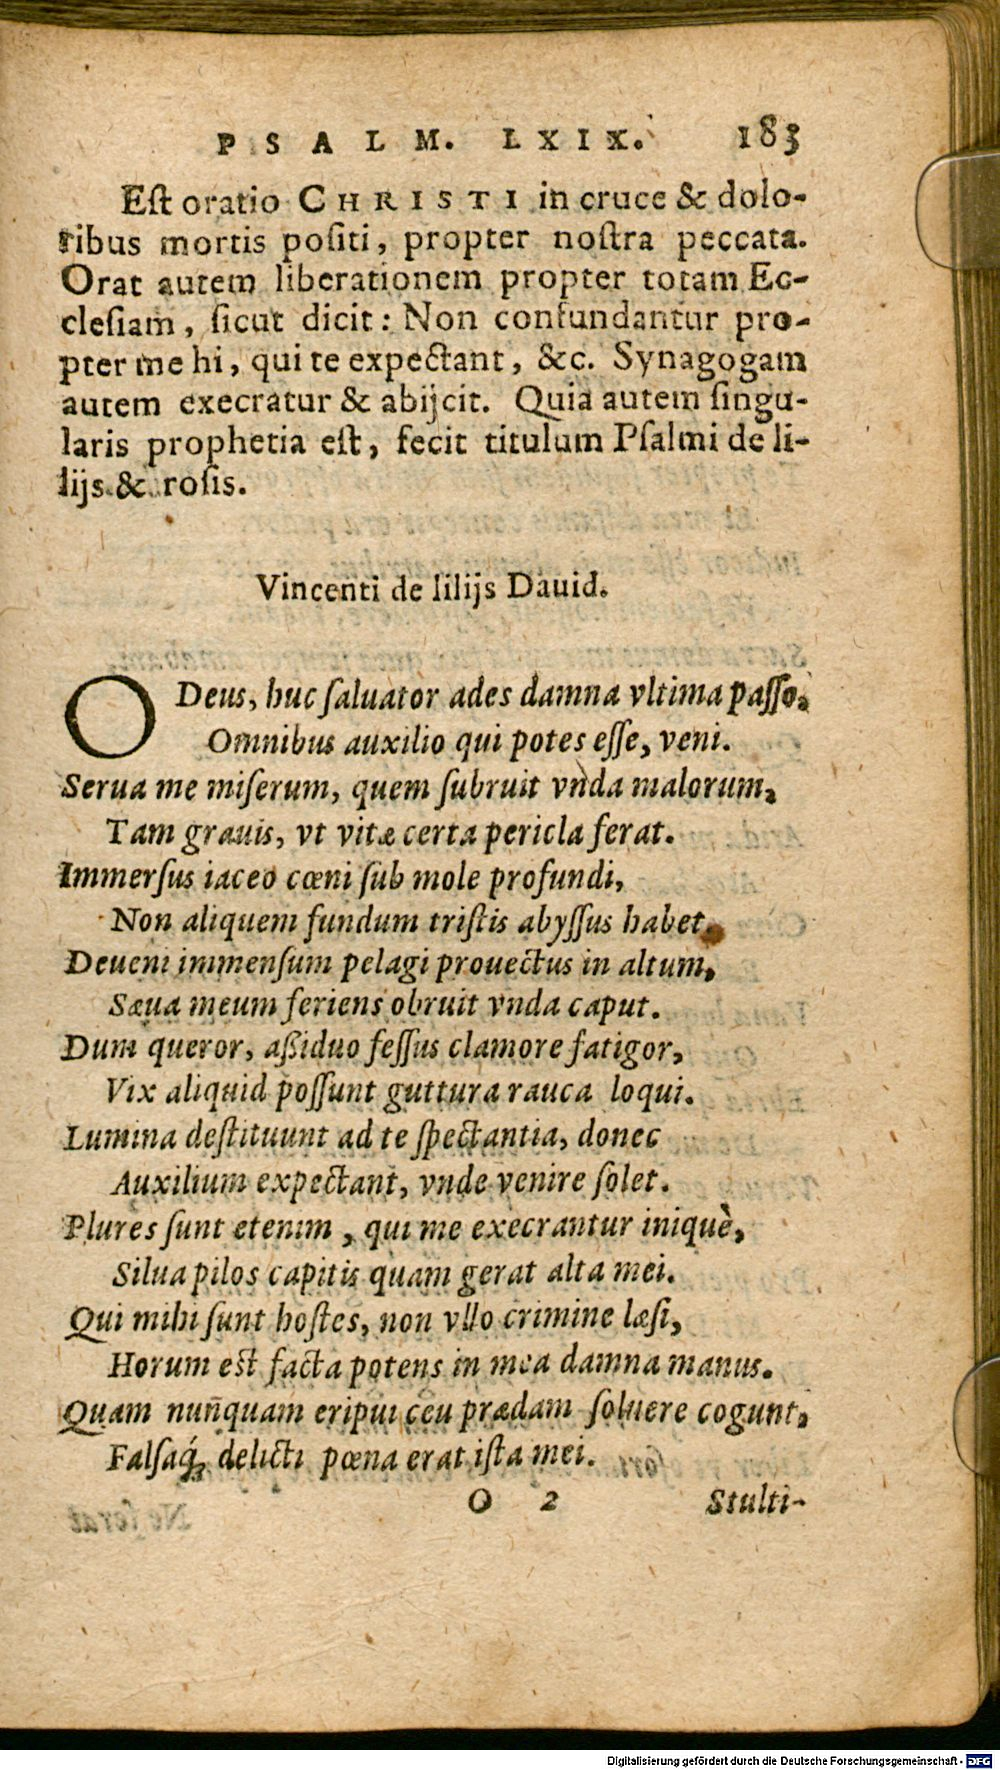 PSALM. LXIX. 183
Est oratio CHRISTI in cruce & dolo-
ribus mortis positi, propter nostra peccata.
Orat autem liberationem propter totam Ec-
clesiam, sicut dicit: Non confundantur pro-
pter me hi, qui te expectant, &c. Synagogam
autem execratur & abijcit. Quia autem singu-
laris prophetia est, fecit titulum Psalmi de li-
lijs & rosis.
Vincenti de lilijs Dauid.
O Deus, huc saluator ades damna vltima passo,
Omnibus auxilio qui potes esse, veni.
Serua me miserum, quem subruit vnda malorum,
Tam grauis, vt vitæ certa pericla ferat.
Immersus iaceo cœni sub mole profundi,
Non aliquem fundum tristis abyssus habet,
Deueni immensum pelagi prouectus in altum,
Sæua meum feriens obruit vnda caput.
Dum queror, aßiduo fessus clamore fatigor,
Vix aliquid possunt guttura rauca loqui.
Lumina destituunt ad te spectantia, donec
Auxilium expectant, vnde venire solet.
Plures sunt etenim, qui me execrantur iniquè,
Silua pilos capitis quam gerat alta mei.
Qui mihi sunt hostes, non vllo crimine læsi,
Horum est facta potens in mea damna manus.
Quam nunquam eripui ceu prædam soluere cogunt,
Falsaq́; delicti pœna erat ista mei.
O 2 Stulti-
Digitalisierung gefördert durch die Deutsche Forschungsgemeinschaft - DFG